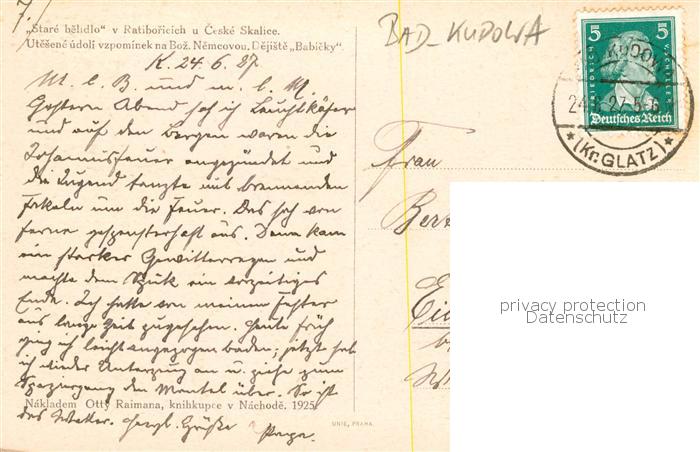 7.)
„Staré bělidlo" v Ratibořicích u České Skalice.
Utěšené údolí vzpomínek na Bož. Němcovou. Dějiště „Babičky".
BAD-KUDOWA
K. 24. 6. 27.
M. l. B. und m. l. M.
Gestern Abend sah ich Leuchtkäfer
und auf den Bergen waren die
Johannisfeuer angezündet und
die Jugend tanzte mit brennenden
Fakeln um die Feuer. Das sah von
ferne gespensterhaft aus. Dann kam
ein starker Gewitterregen und
machte dem Spuk ein vorzeitiges
Ende. Ich hatte von meinem Fenster
aus lange Zeit zugesehen. Heute früh
ging ich leicht angezogen baden; jetzt hab
ich wieder Unterzeug an u. ziehe zum
Spaziergang den Mantel über. So ist
Nákladem Otty Raimana, knihkupce v Náchodě. 1925.
das Wetter. Herzl. Grüße
Papa.
UNIE, PRAHA.
5 5
FRIEDRICH V. SCHILLER
Deutsches Reich
KUDOWA
24.6.27.5-6
★ (Kr. GLATZ) ★
Frau
privacy protection
Datenschutz